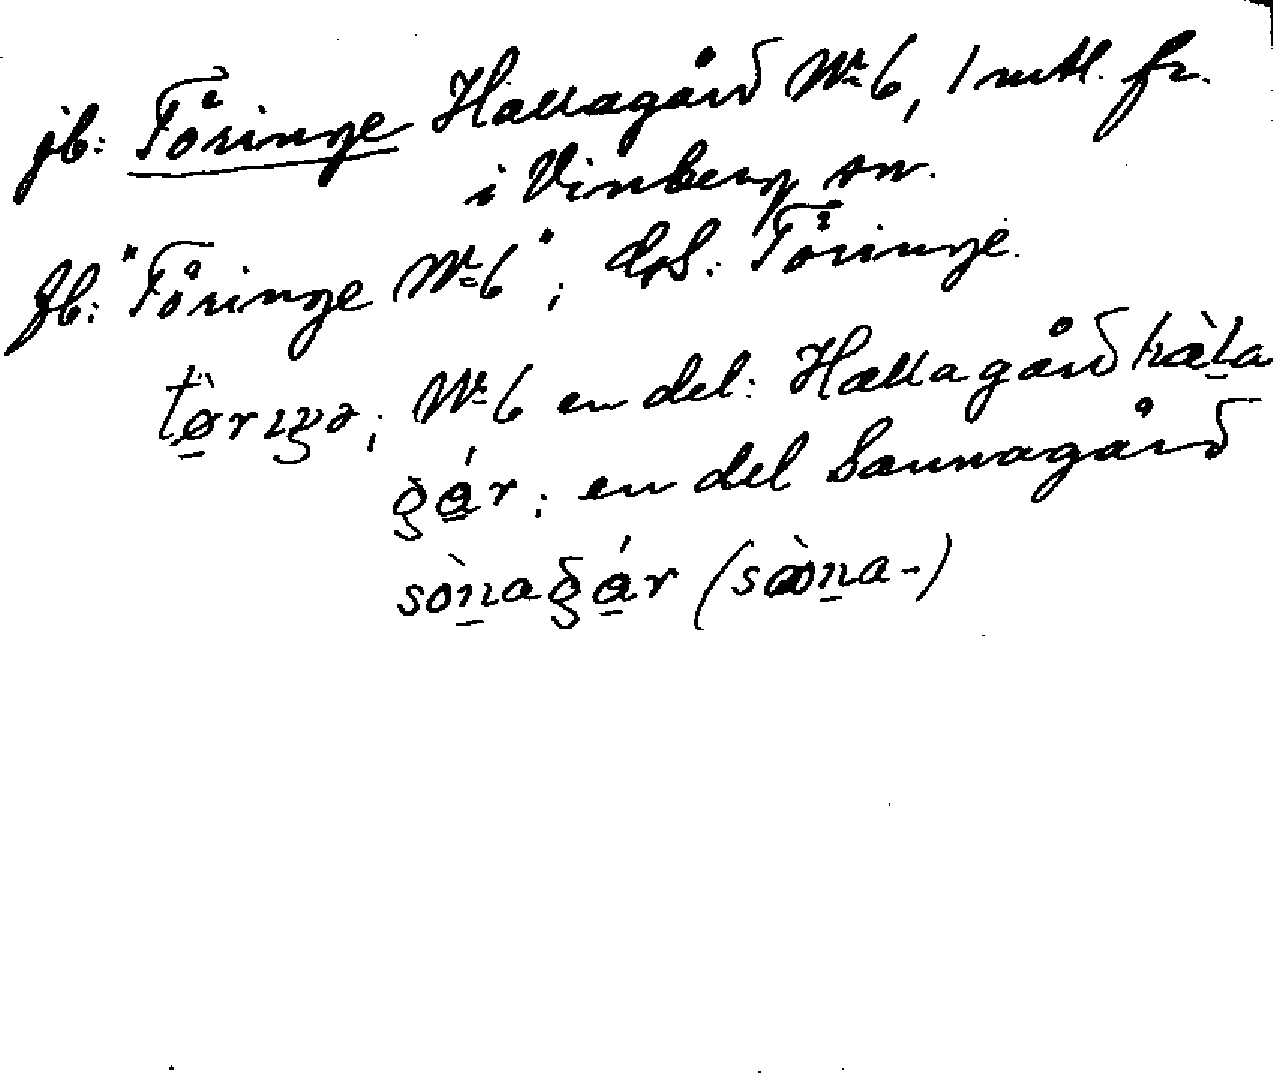 jb: Töringe Hallagård No 6, 1 mtl. fr.
i Vinberg sn.
Jb: "Töringe No 6"; dps: Töringe.
tø̀rıŋə; No 6 en del: Hallagård hàla
gár; en del Sannagård
sònagár (sàna-)